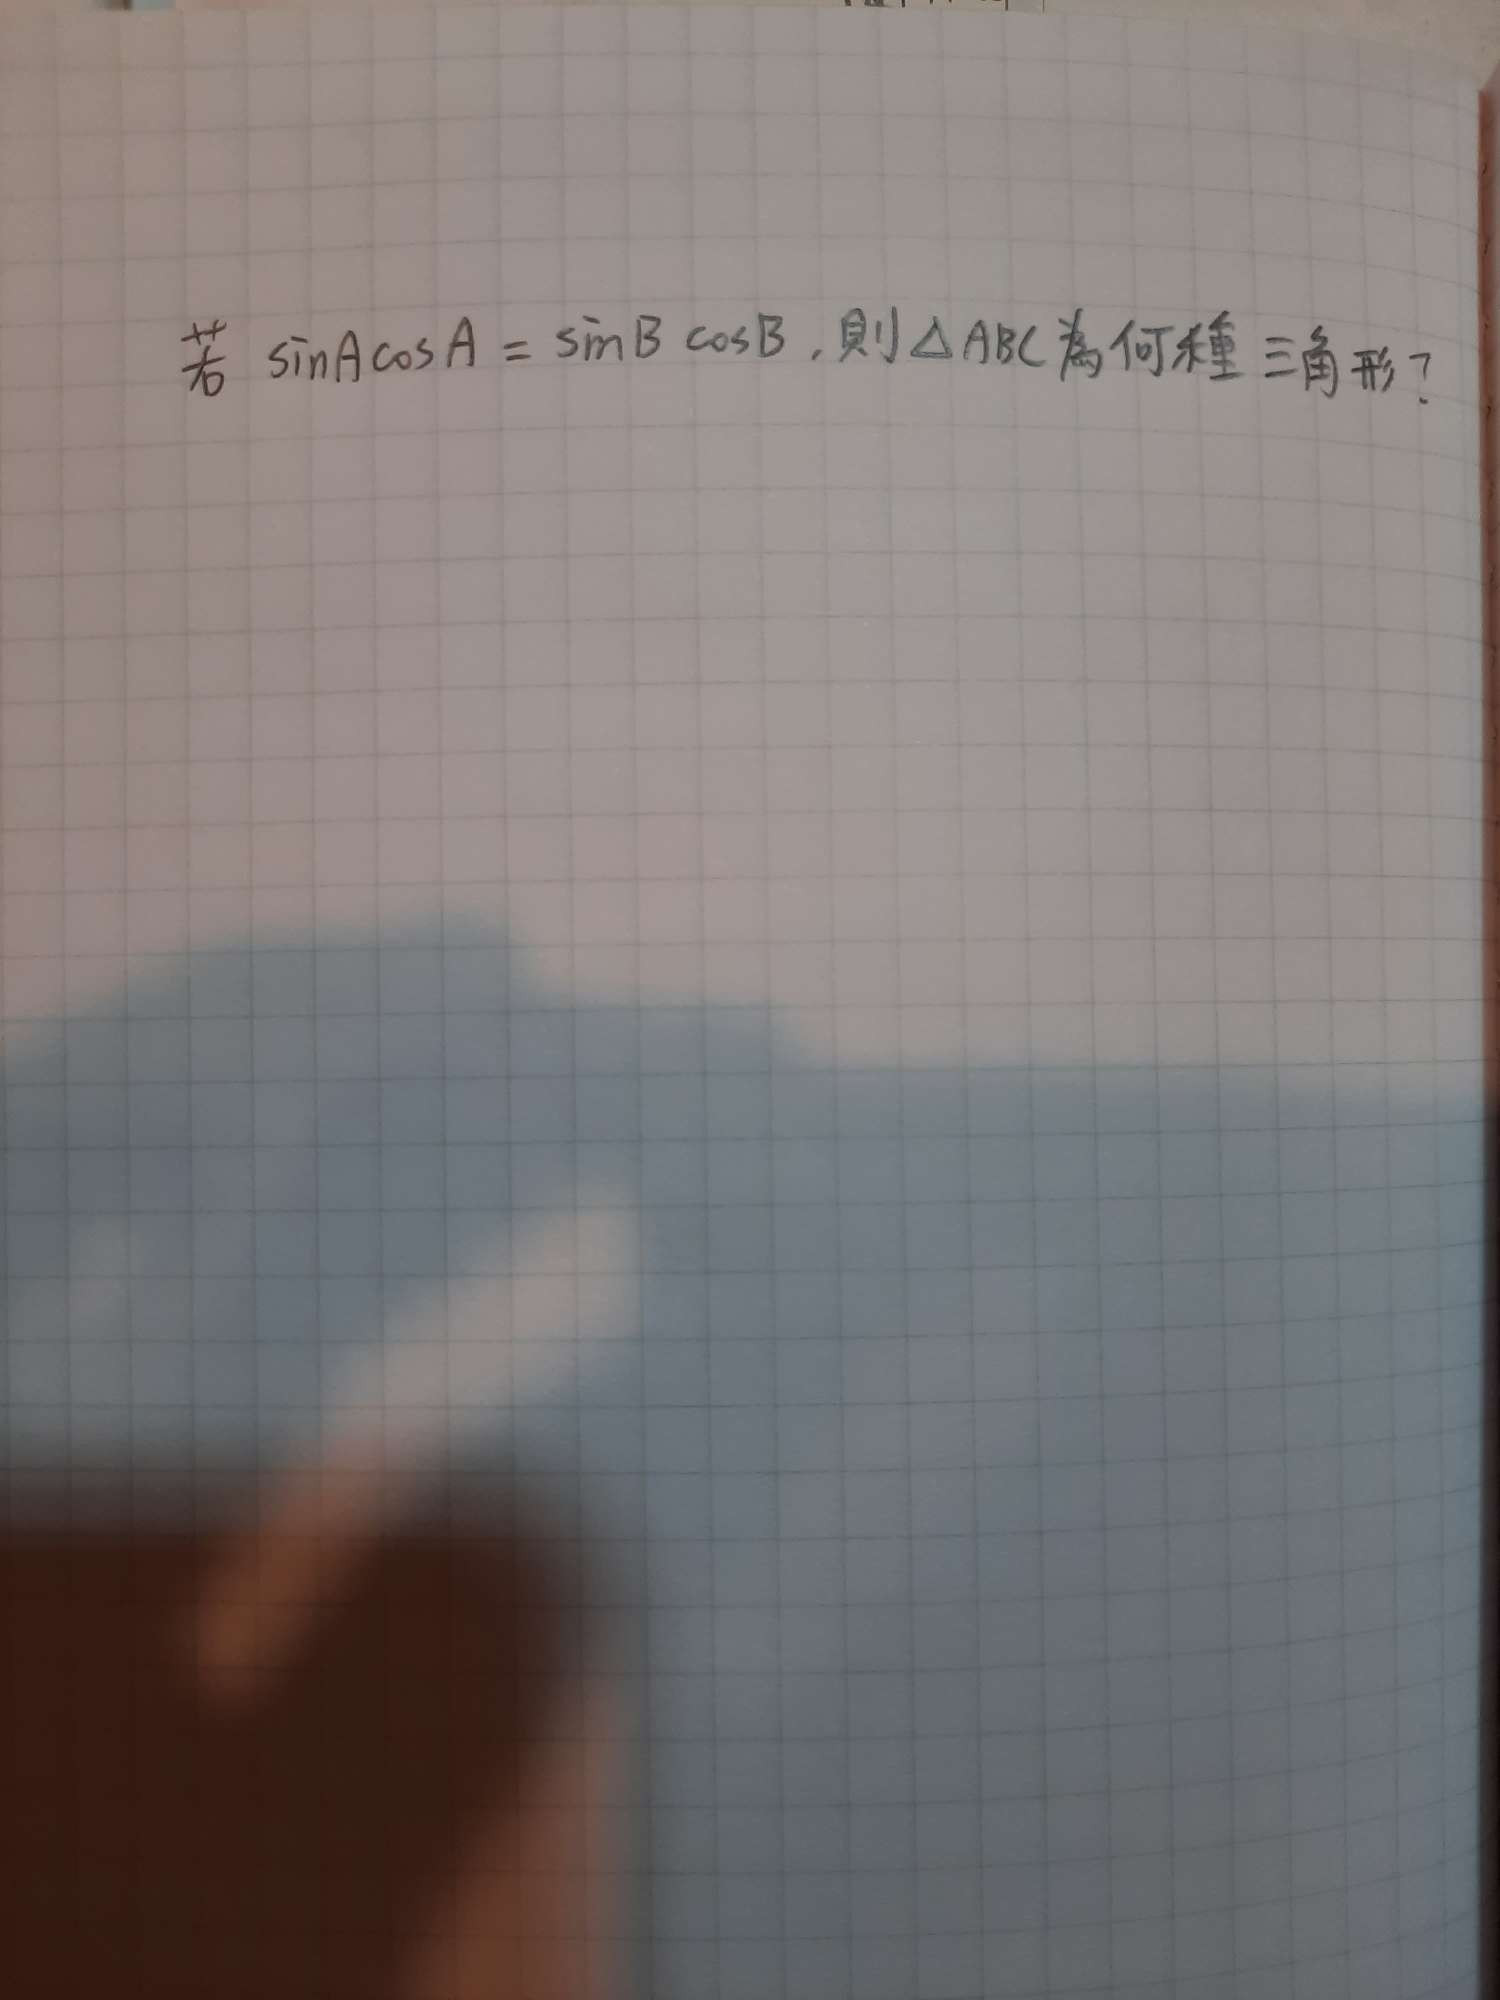 若 sinA cosA = sinB cosB，則△ABC為何種三角形？